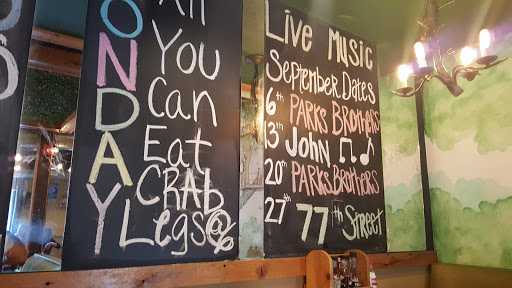 ONDAY
All
You
Can
Eat
CRAb
Legs@6
Live Music
September Dates
6th PARKS BROTHERS
13th JOHN
20th PARKS BROTHERS
27th 77th Street